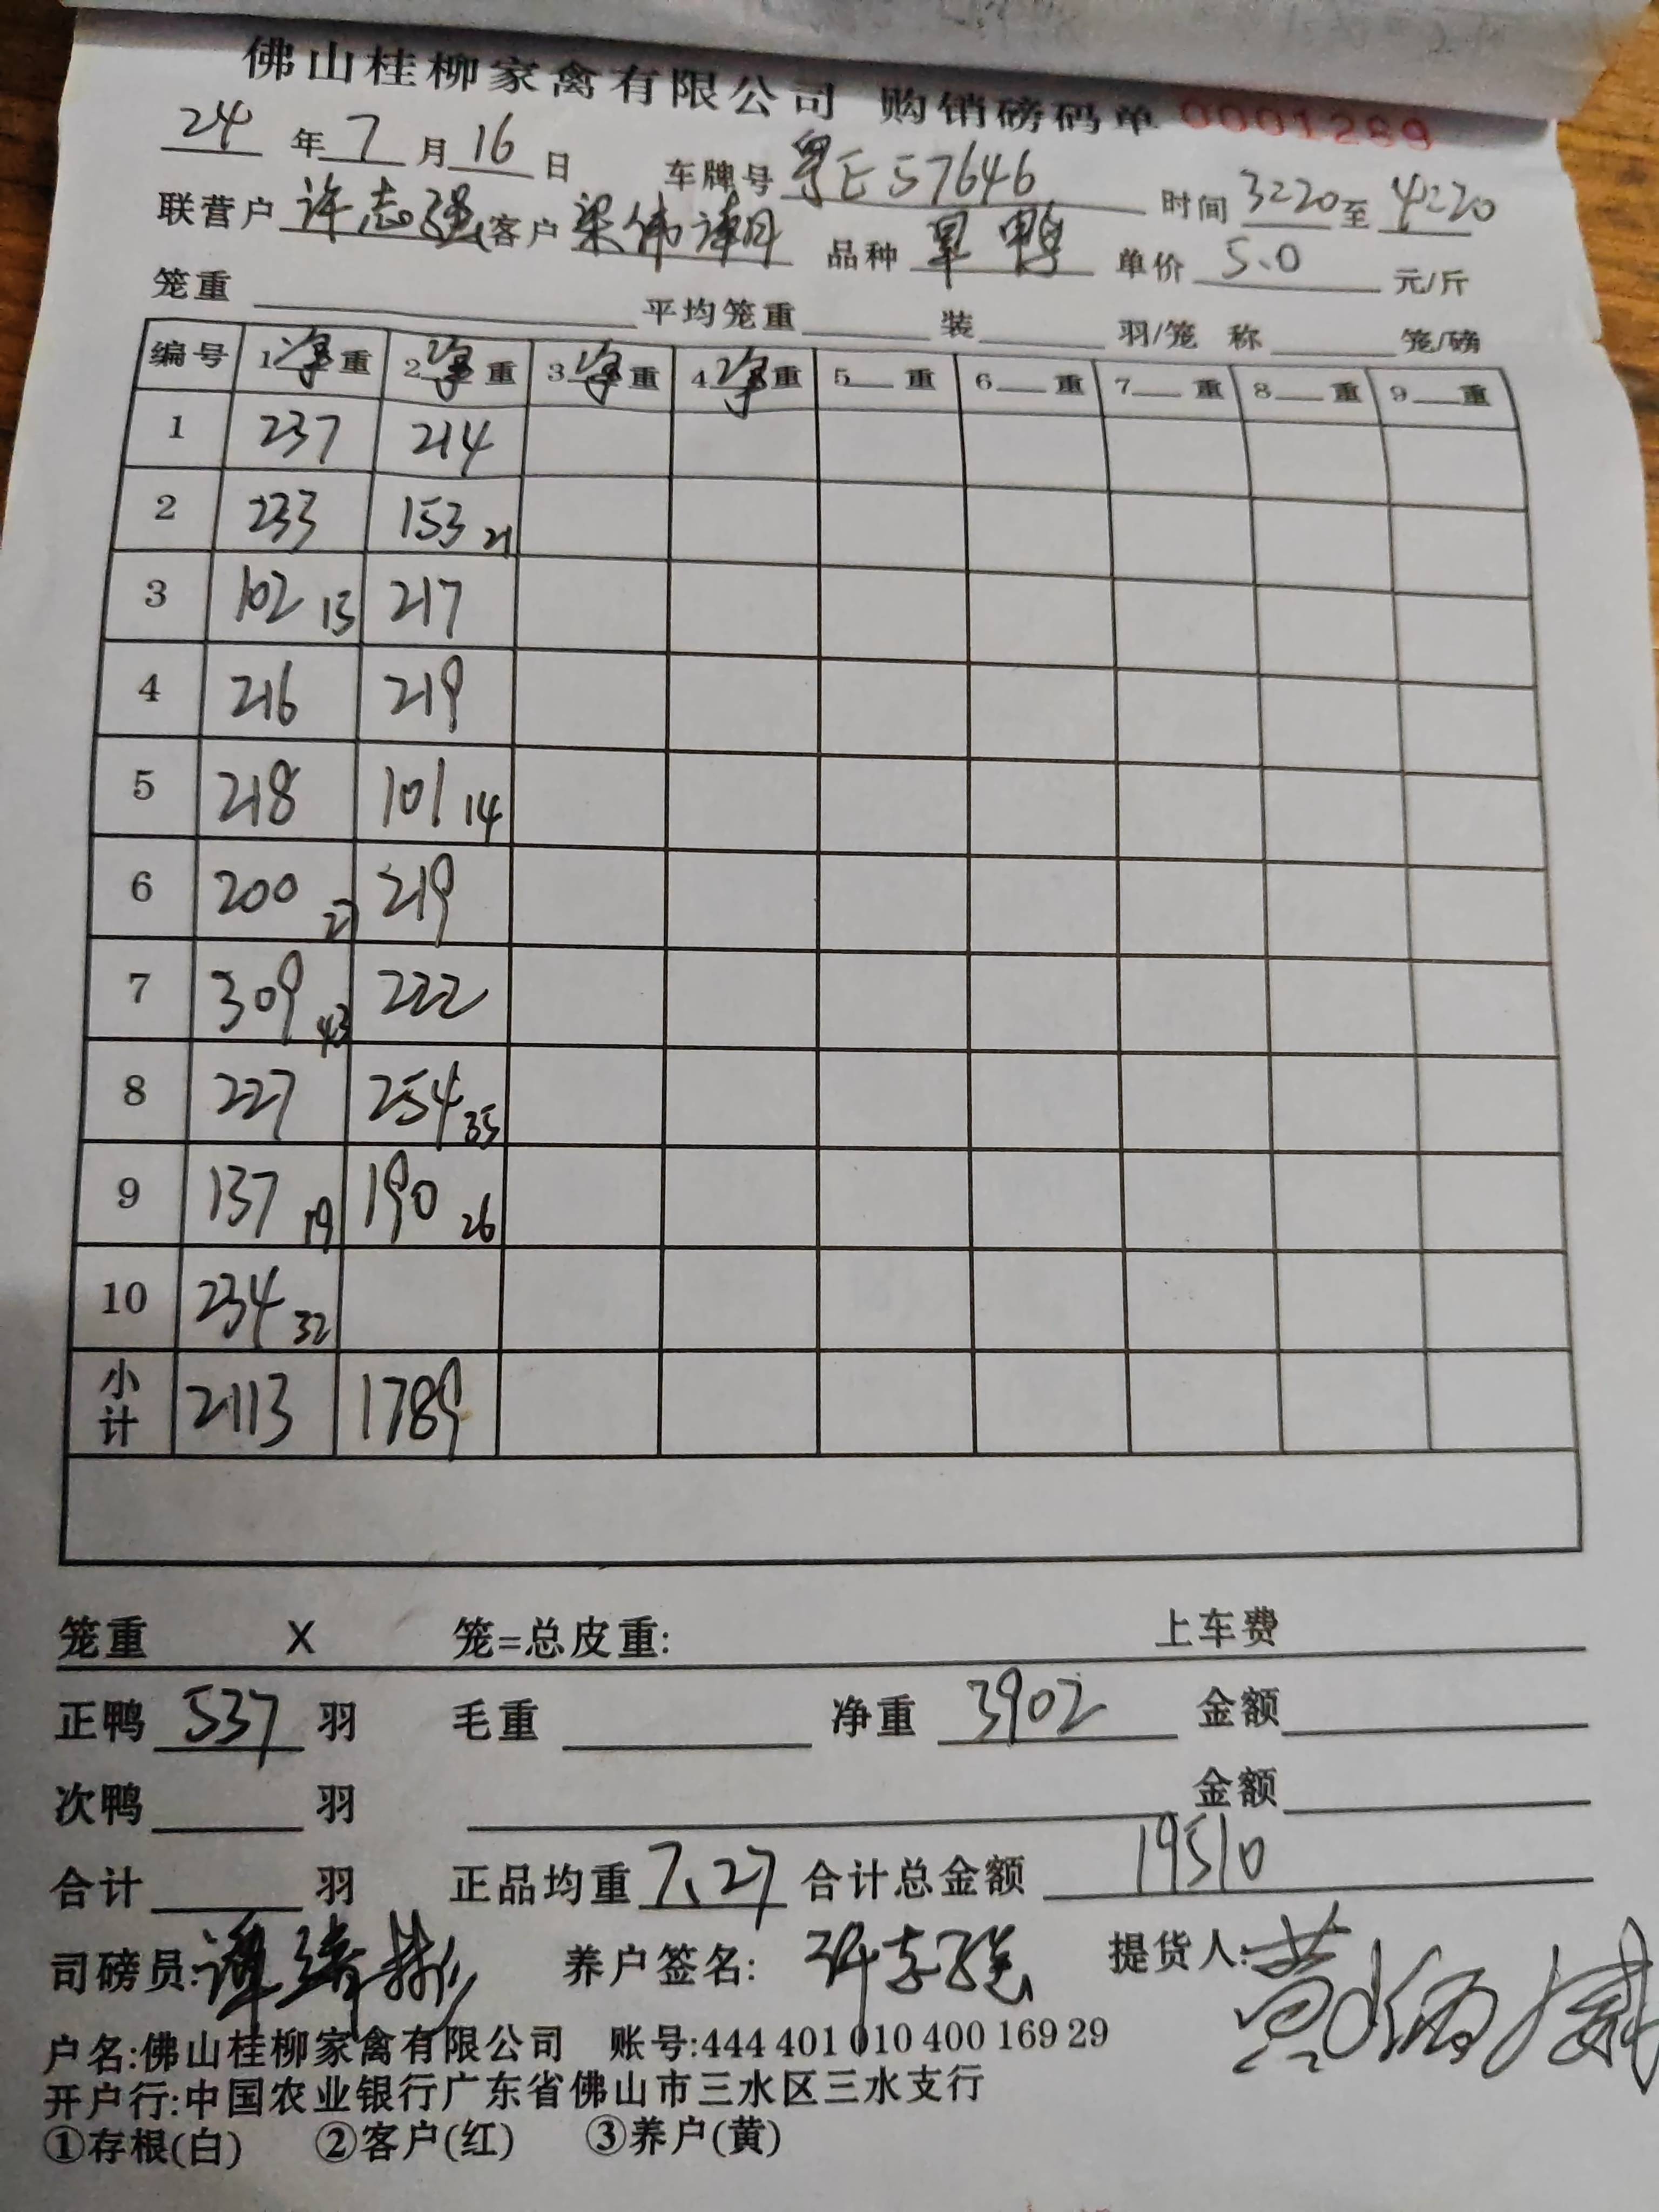 佛山桂柳家禽有限公司 购销磅码单 0001289
24 年 7 月 16 日 车牌号 粤E57646 时间 3:20 至 4:20
联营户 许志强 客户 梁伟 品种 旱鸭 单价 5.0 元/斤
笼重 平均笼重 装 羽/笼 称 笼/磅
编号 1净重 2净重 3净重 4净重 5 重 6 重 7 重 8 重 9 重
1 237 214
2 233 153 21
3 102 13 217
4 216 219
5 218 101 14
6 200 27 219
7 309 43 222
8 227 254 35
9 137 19 190 26
10 234 32
小计 2113 1789
笼重 X 笼=总皮重: 上车费
正鸭 537 羽 毛重 净重 3902 金额
次鸭 羽 金额
合计 羽 正品均重 7.27 合计总金额 19510
司磅员: 养户签名: 许志强 提货人: 黄
户名:佛山桂柳家禽有限公司 账号:444 401 010 400 169 29
开户行:中国农业银行广东省佛山市三水区三水支行
①存根(白) ②客户(红) ③养户(黄)